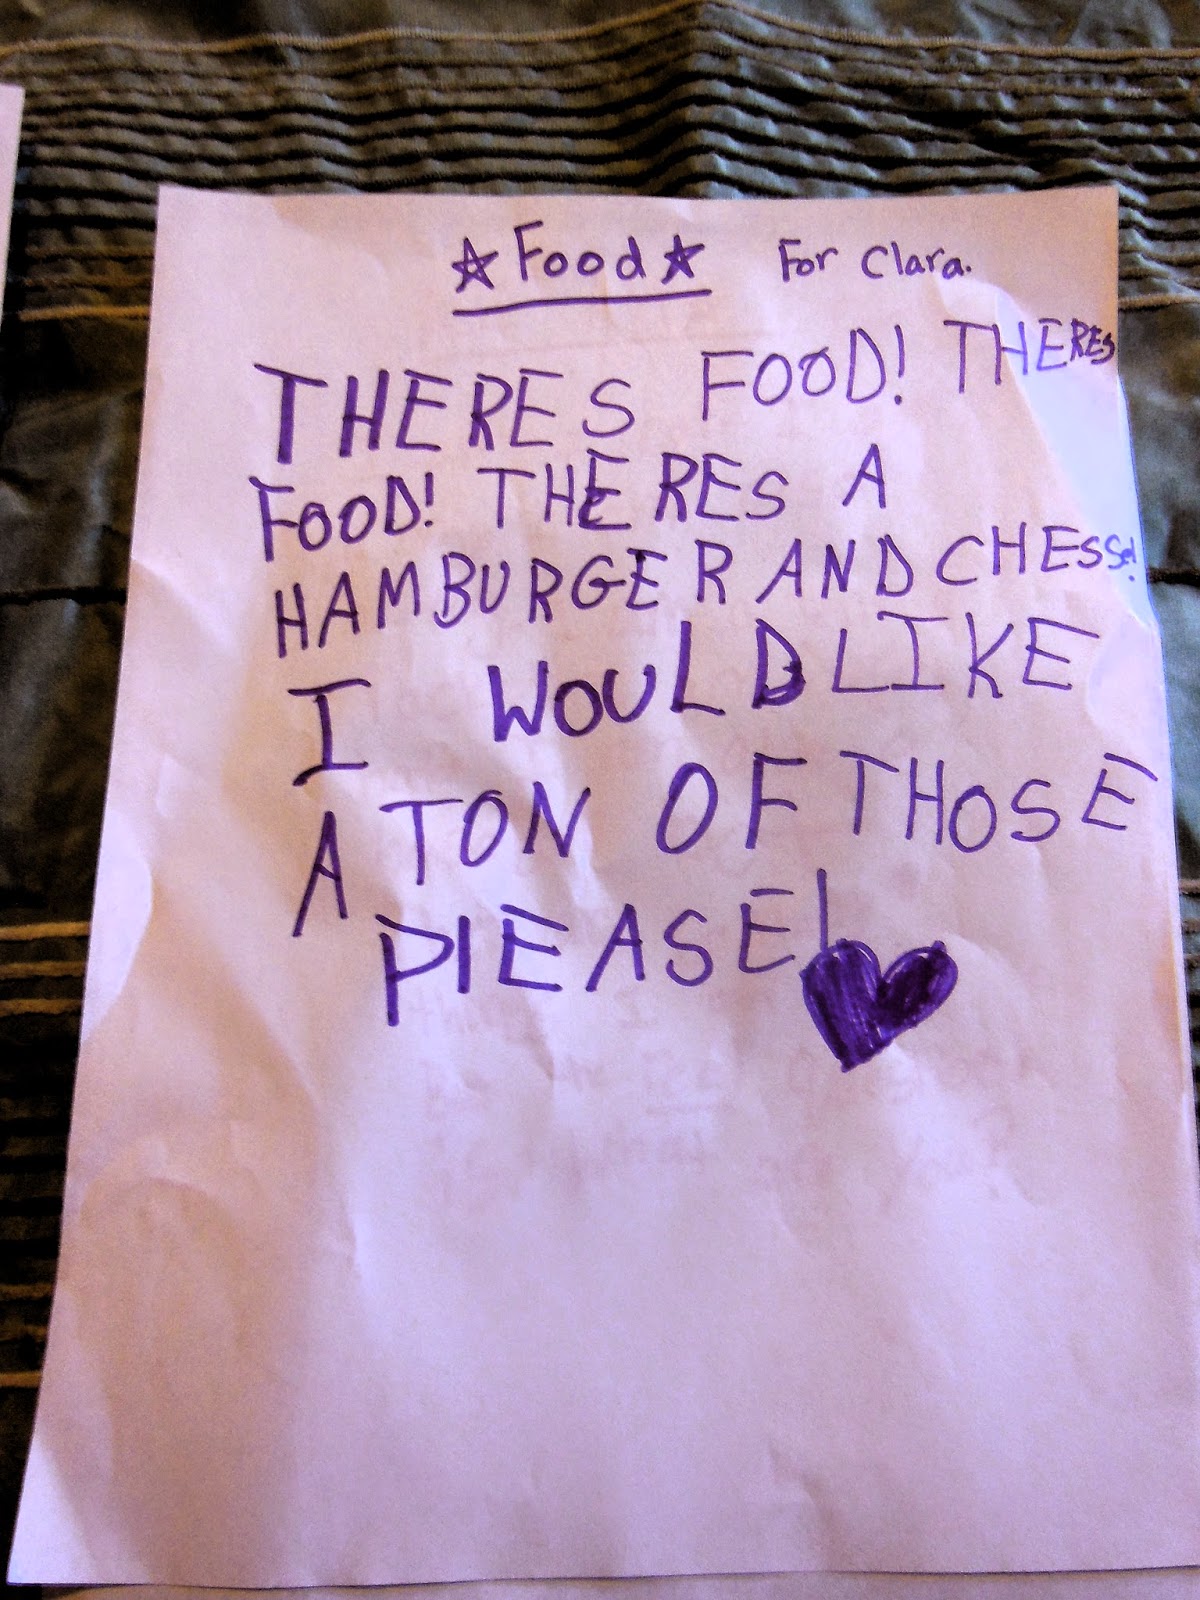 ☆Food☆ For Clara.
THERES FOOD! THERES
FOOD! THERES A
HAMBURGER AND CHESSE!
I WOULD LIKE
A TON OF THOSE
PlEASE!